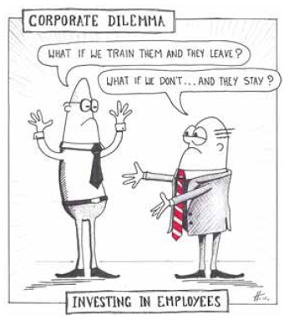 CORPORATE DILEMMA
WHAT IF WE TRAIN THEM AND THEY LEAVE?
WHAT IF WE DON'T...AND THEY STAY?
INVESTING IN EMPLOYEES